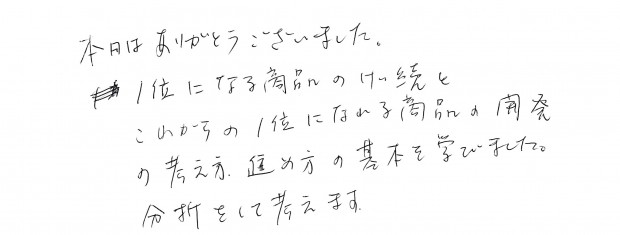 本日はありがとうございました。
1位になる商品のけい続と
これからの1位になれる商品の開発
の考え方、進め方の基本を学びました。
分析をして考えます